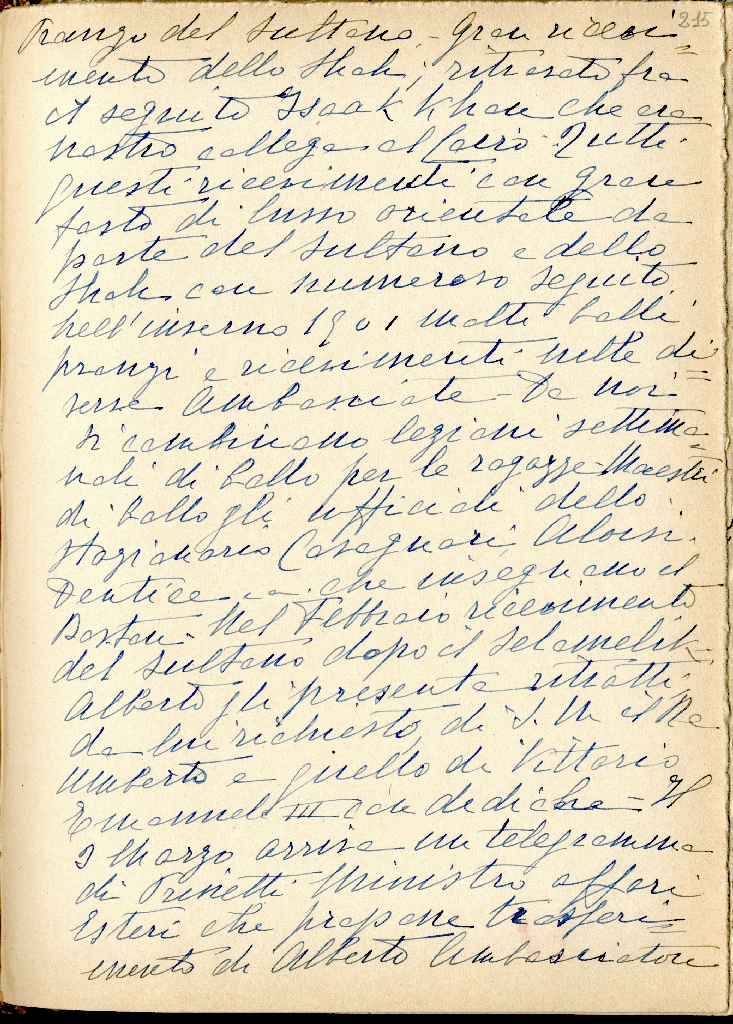 215
Pranzo del Sultano - Gran ricevi=
mento dello Shah; ritrovato fra
il seguito Isaak Khan che era
nostro collega al Cairo. Tutti
questi ricevimenti con gran
fasto di lusso orientale da
parte del Sultano e dello
Shah con numeroso seguito
nell'inverno 1901 molti balli
pranzi e ricevimenti nelle di=
verse Ambasciate - Da noi
si combinano lezioni settima=
nali di ballo per le ragazze - Maestri
di ballo gli ufficiali dello
stazionario Casagnari Aloisi.
Dentice che insegnano il
Boston. Nel Febbraio ricevimento
del Sultano dopo il Selamelik.
Alberto gli presenta ritratti,
da lui richiesto, di S. M. il Re
Umberto e quello di Vittorio
Emanuele III con dedica - Il
Marzo arriva un telegramma
di Prinetti Ministro affari
Esteri che propone trasferi=
mento di Alberto Ambasciatore